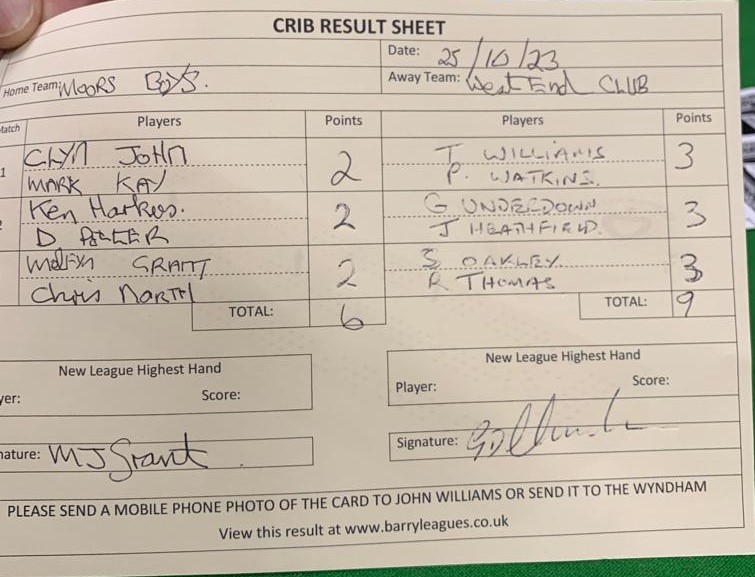 CRIB RESULT SHEET
Date: 25/10/23
Home Team: MOORS BOYS.
Away Team: West End CLUB
Match Players Points Players Points
1 GLYN JOHN 2 T WILLIAMS 3
MARK KAY P. WATKINS.
Ken Harkus. 2 G UNDERDOWN 3
D POTTER J HEATHFIELD.
Melvyn GRANT 2 S OAKLEY 3
Chris NORTH R THOMAS
TOTAL: 6 TOTAL: 9
New League Highest Hand New League Highest Hand
yer: Score: Player: Score:
nature: MJ Grant Signature:
PLEASE SEND A MOBILE PHONE PHOTO OF THE CARD TO JOHN WILLIAMS OR SEND IT TO THE WYNDHAM
View this result at www.barryleagues.co.uk